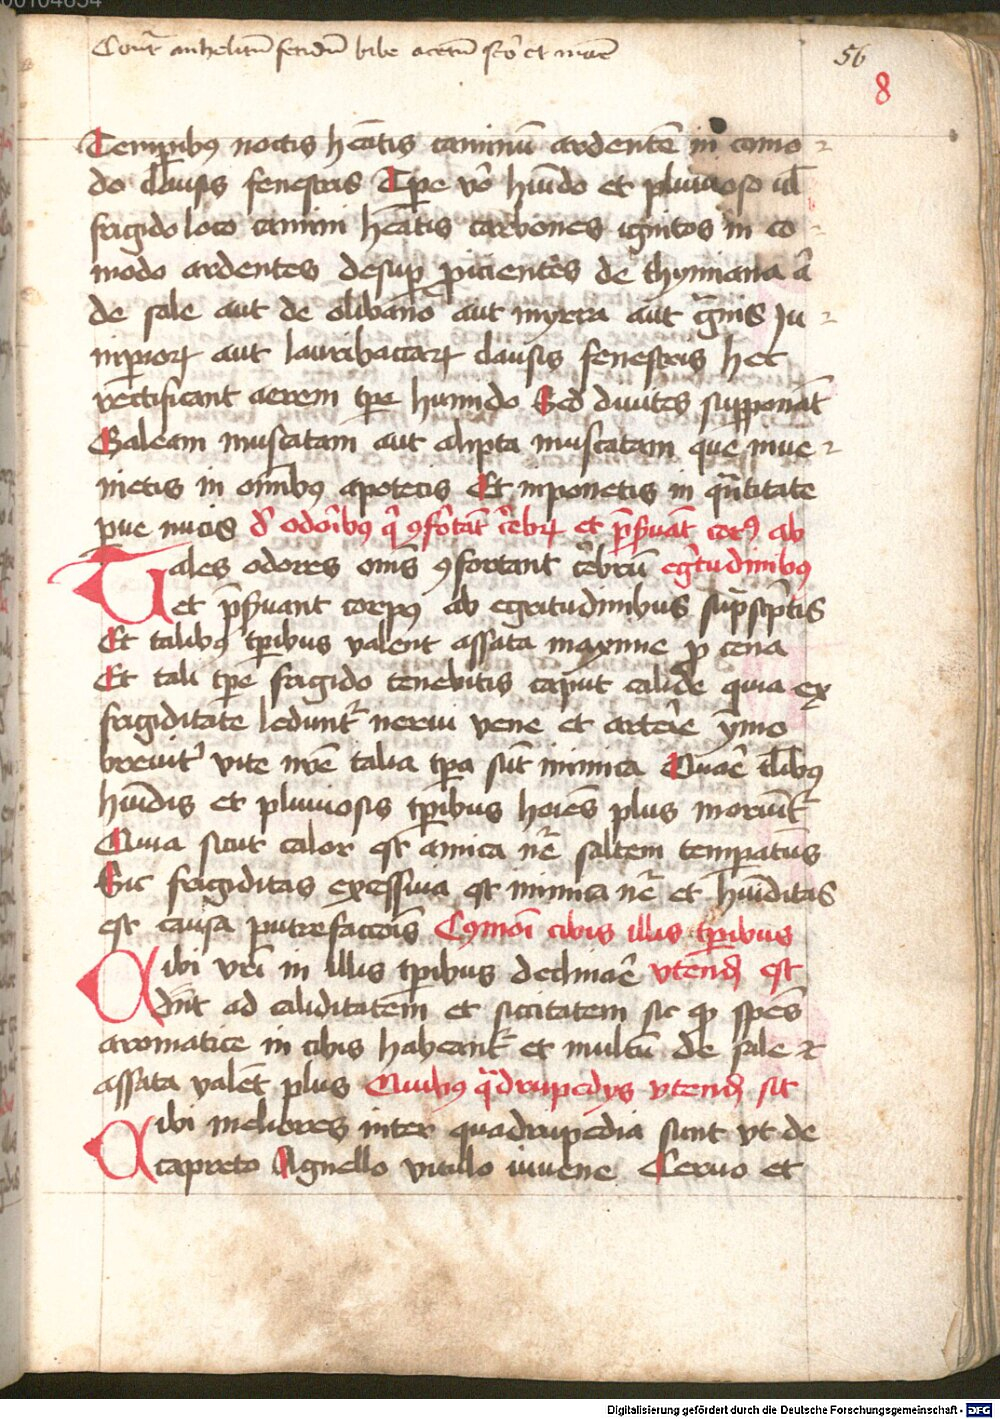 00104634
Contra anhelitum fetidum bibe acetum
56
8
Temporibus noctis hēatis caminū ardentē in como
do clausis fenestris Tpe vo huido et pluuioso ul
frigido loco camini hēatis carbones ignitos in co
modo ardentes desup proicientes de thymiana a
de sale aut de olibano aut myrra aut granis Ju
niperorum aut lauribaccarum clausis fenestris hec
rectificant aerem tpe humido Sed diuites supponāt
Galeam muscatam aut alipta muscatam que inue
nietis in oīnibus apotecis Et inponetis in qūtitate
pue nucis d odoribus q 9fortāt cebrum et pseruāt corpus ab
Tales odores omīs 9fortant cebrū egritudinibus
et pseruant corpus ab egritudinibus supscptis
Et talibus tpibus valent assata maxime p cena
Et tali tpe frigido tenebitis caput calide quia ex
frigiditate leduntur nerui vene et arterie ymo
breuiter vite nre talia tpa sūt inimica Quare tlibus
huidis et pluuiosis tpibus hoies plus moriūtur
Quia sicut calor est amica nre saltem temperatus
Sic frigiditas excessiua est inimica nre et huiditas
est causa putrefaccois Cōmoi cibis illis tpibus
Cibi vri in illis tpibus declinare vtendum est
dnt ad caliditatem et siccitatem sic q spes
aromatice in cibis habeantur et multū de sale et
assata valēt plus Quibus qadrupedys vtendum sit
Cibi meliores inter quadrupedia sunt vt de
capreto Agnello vitulo iuuene Ceruo et
Digitalisierung gefördert durch die Deutsche Forschungsgemeinschaft - DFG